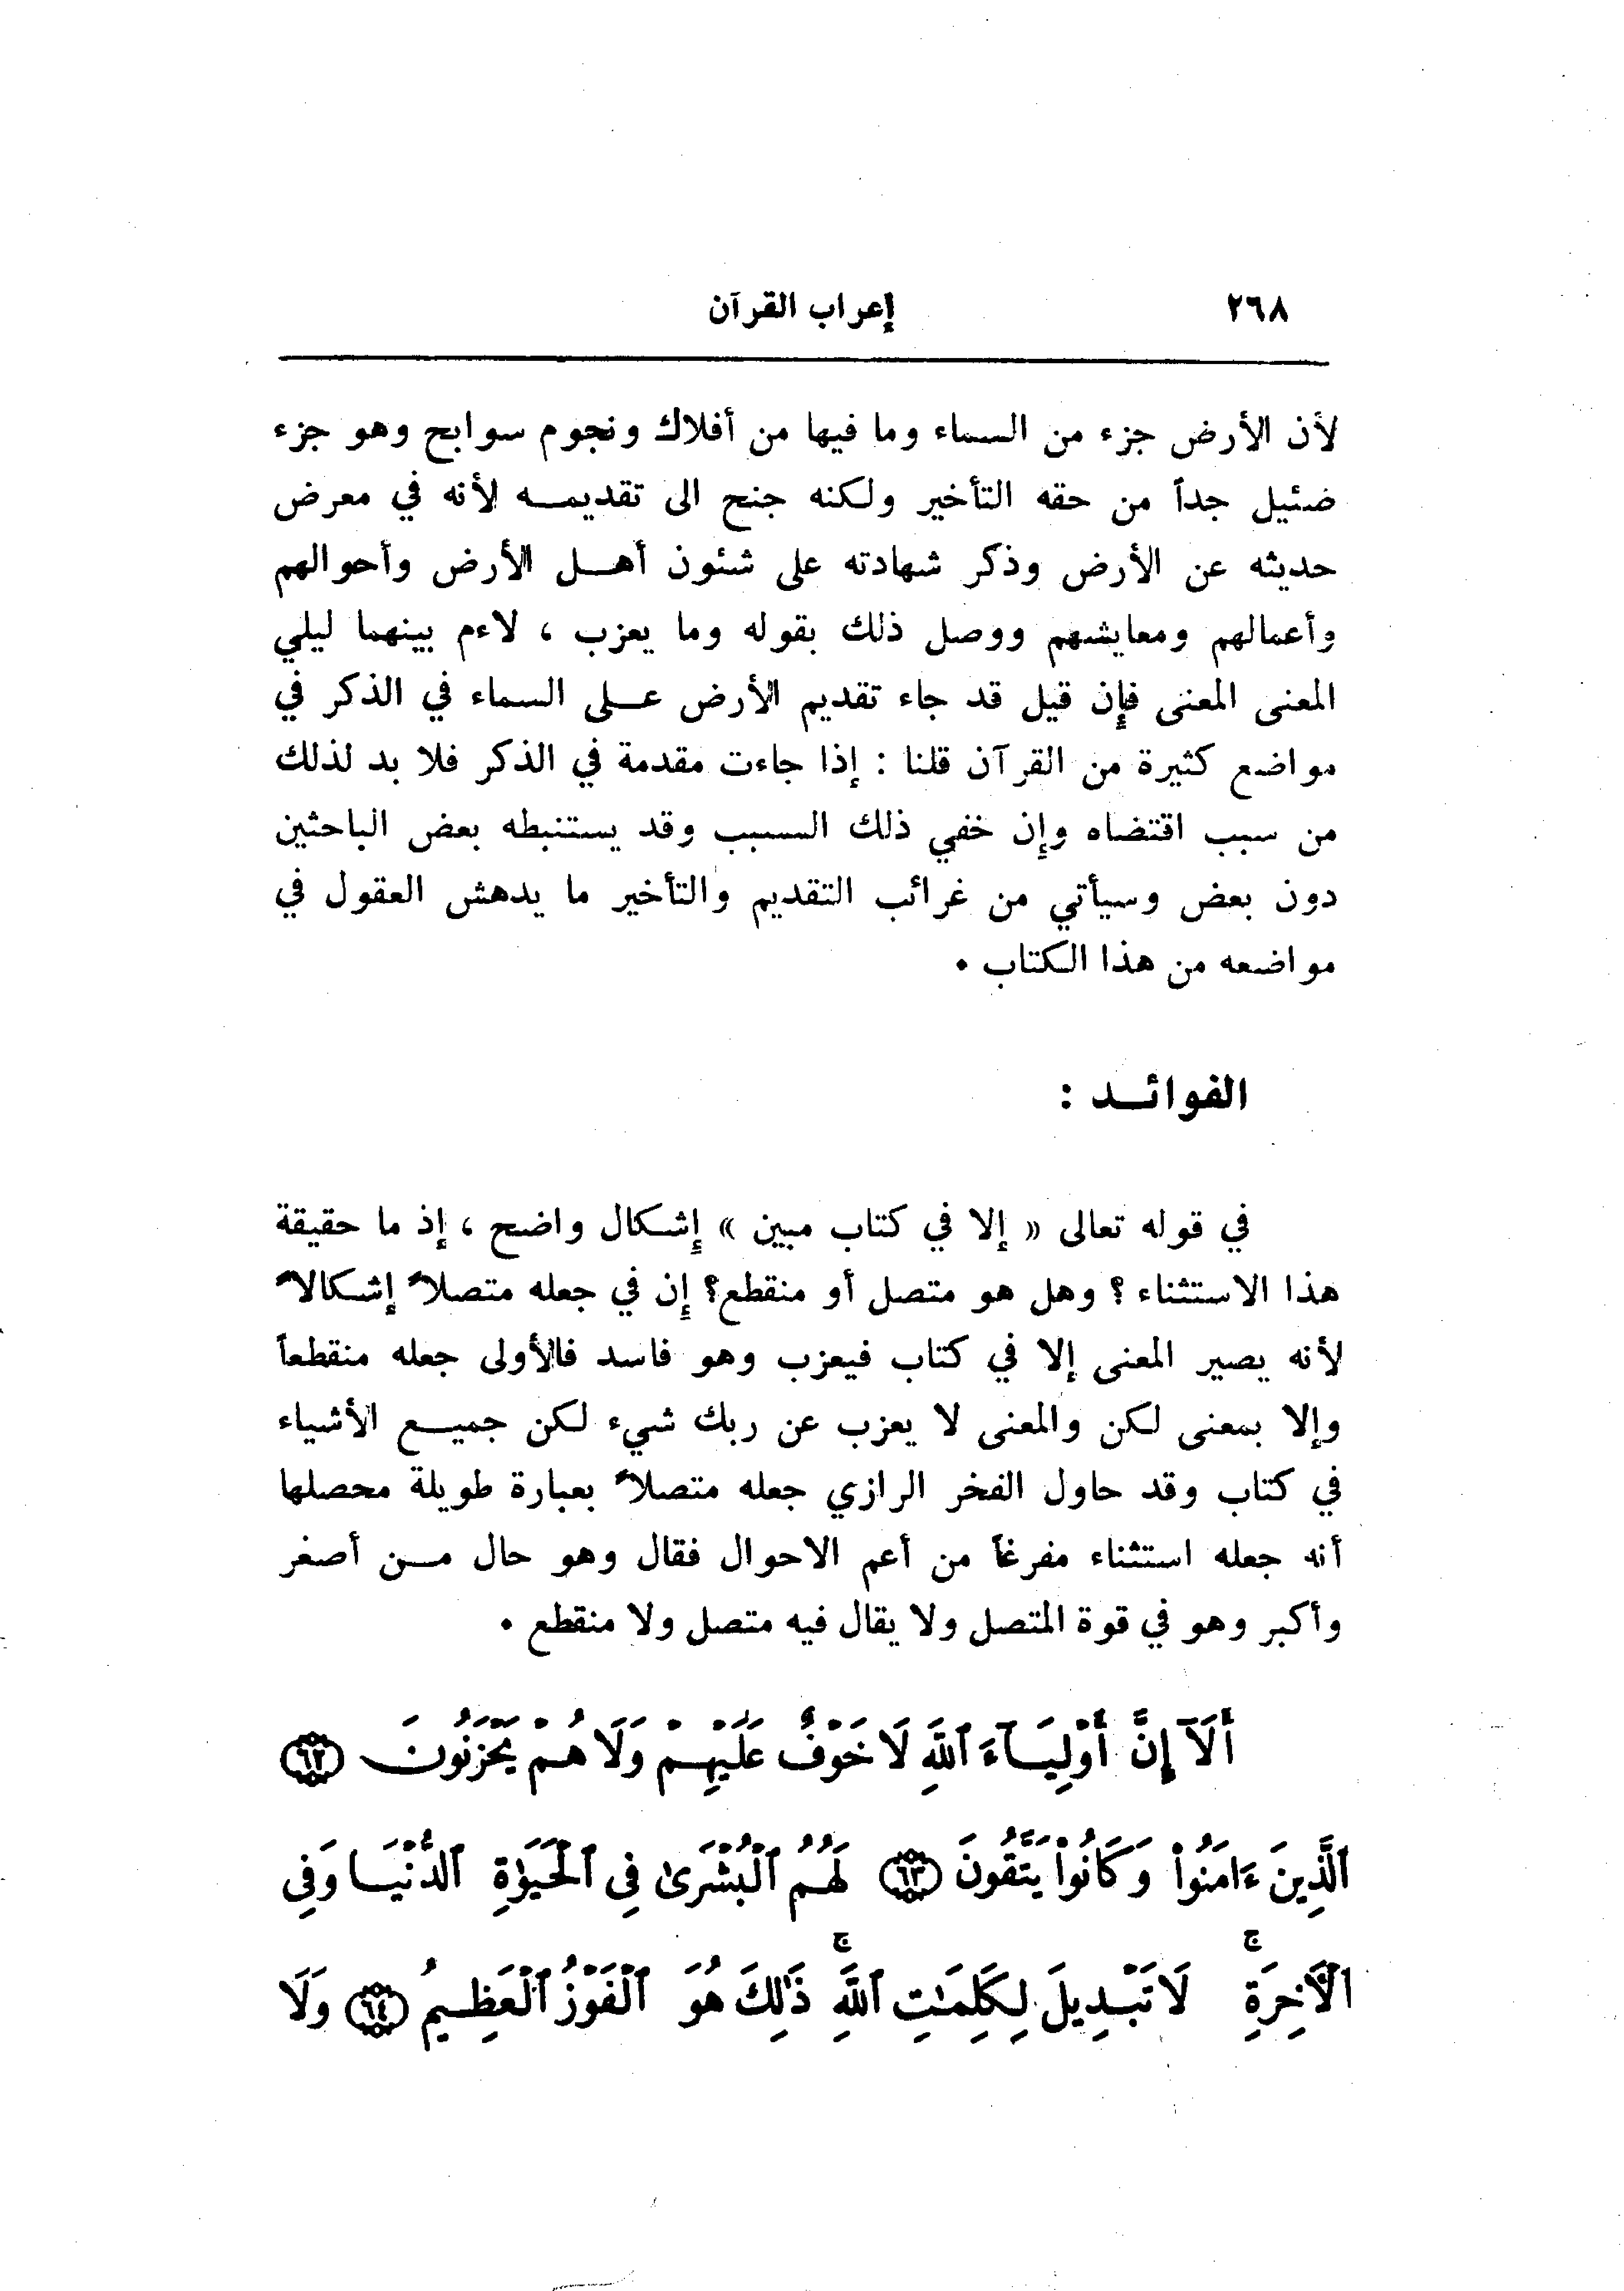 ٢٦٨ إعراب القرآن
لأن الأرض جزء من السماء وما فيها من أفلاك ونجوم سوابح وهو جزء
ضئيل جداً من حقه التأخير ولكنه جنح الى تقديمـــه لأنه في معرض
حديثه عن الأرض وذكر شهادته على شئون أهـــل الأرض وأحوالهم
وأعمالهم ومعايشهم ووصل ذلك بقوله وما يعزب ، لاءم بينهما ليلي
المعنى المعنى فإن قيل قد جاء تقديم الأرض عـــلى السماء في الذكر في
مواضع كثيرة من القرآن قلنا : إذا جاءت مقدمة في الذكر فلا بد لذلك
من سبب اقتضاه وإن خفي ذلك السبب وقد يستنبطه بعض الباحثين
دون بعض وسيأتي من غرائب التقديم والتأخير ما يدهش العقول في
مواضعه من هذا الكتاب .
الفوائـــد :
في قوله تعالى « إلا في كتاب مبين » إشكال واضح ، إذ ما حقيقة
هذا الاستثناء ؟ وهل هو متصل أو منقطع؟ إن في جعله متصلاً إشكالاً
لأنه يصير المعنى إلا في كتاب فيعزب وهو فاسد فالأولى جعله منقطعاً
وإلا بمعنى لكن والمعنى لا يعزب عن ربك شيء لكن جميـــع الأشياء
في كتاب وقد حاول الفخر الرازي جعله متصلاً بعبارة طويلة محصلها
أنه جعله استثناء مفرغاً من أعم الاحوال فقال وهو حال مـــن أصغر
وأكبر وهو في قوة المتصل ولا يقال فيه متصل ولا منقطع .
أَلَآ إِنَّ أَوْلِيَـآءَ ٱللَّهِ لَا خَوْفٌ عَلَيْهِـمْ وَلَا هُـمْ يَحْزَنُونَ ﴿٦٢﴾
ٱلَّذِينَ ءَامَنُوا۟ وَكَانُوا۟ يَتَّقُونَ ﴿٦٣﴾ لَهُـمُ ٱلْبُشْرَىٰ فِى ٱلْحَيَوٰةِ ٱلدُّنْيَـا وَفِى
ٱلْأَخِرَةِ ۚ لَا تَبْـدِيلَ لِكَلِمَـٰتِ ٱللَّهِ ۚ ذَٰلِكَ هُوَ ٱلْفَوْزُ ٱلْعَظِـيمُ ﴿٦٤﴾ وَلَا